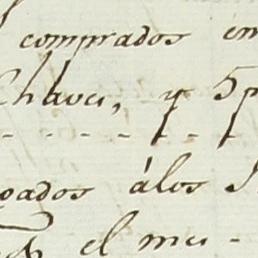 comprados en
Chaves, y 5p
gados álos
el mes-